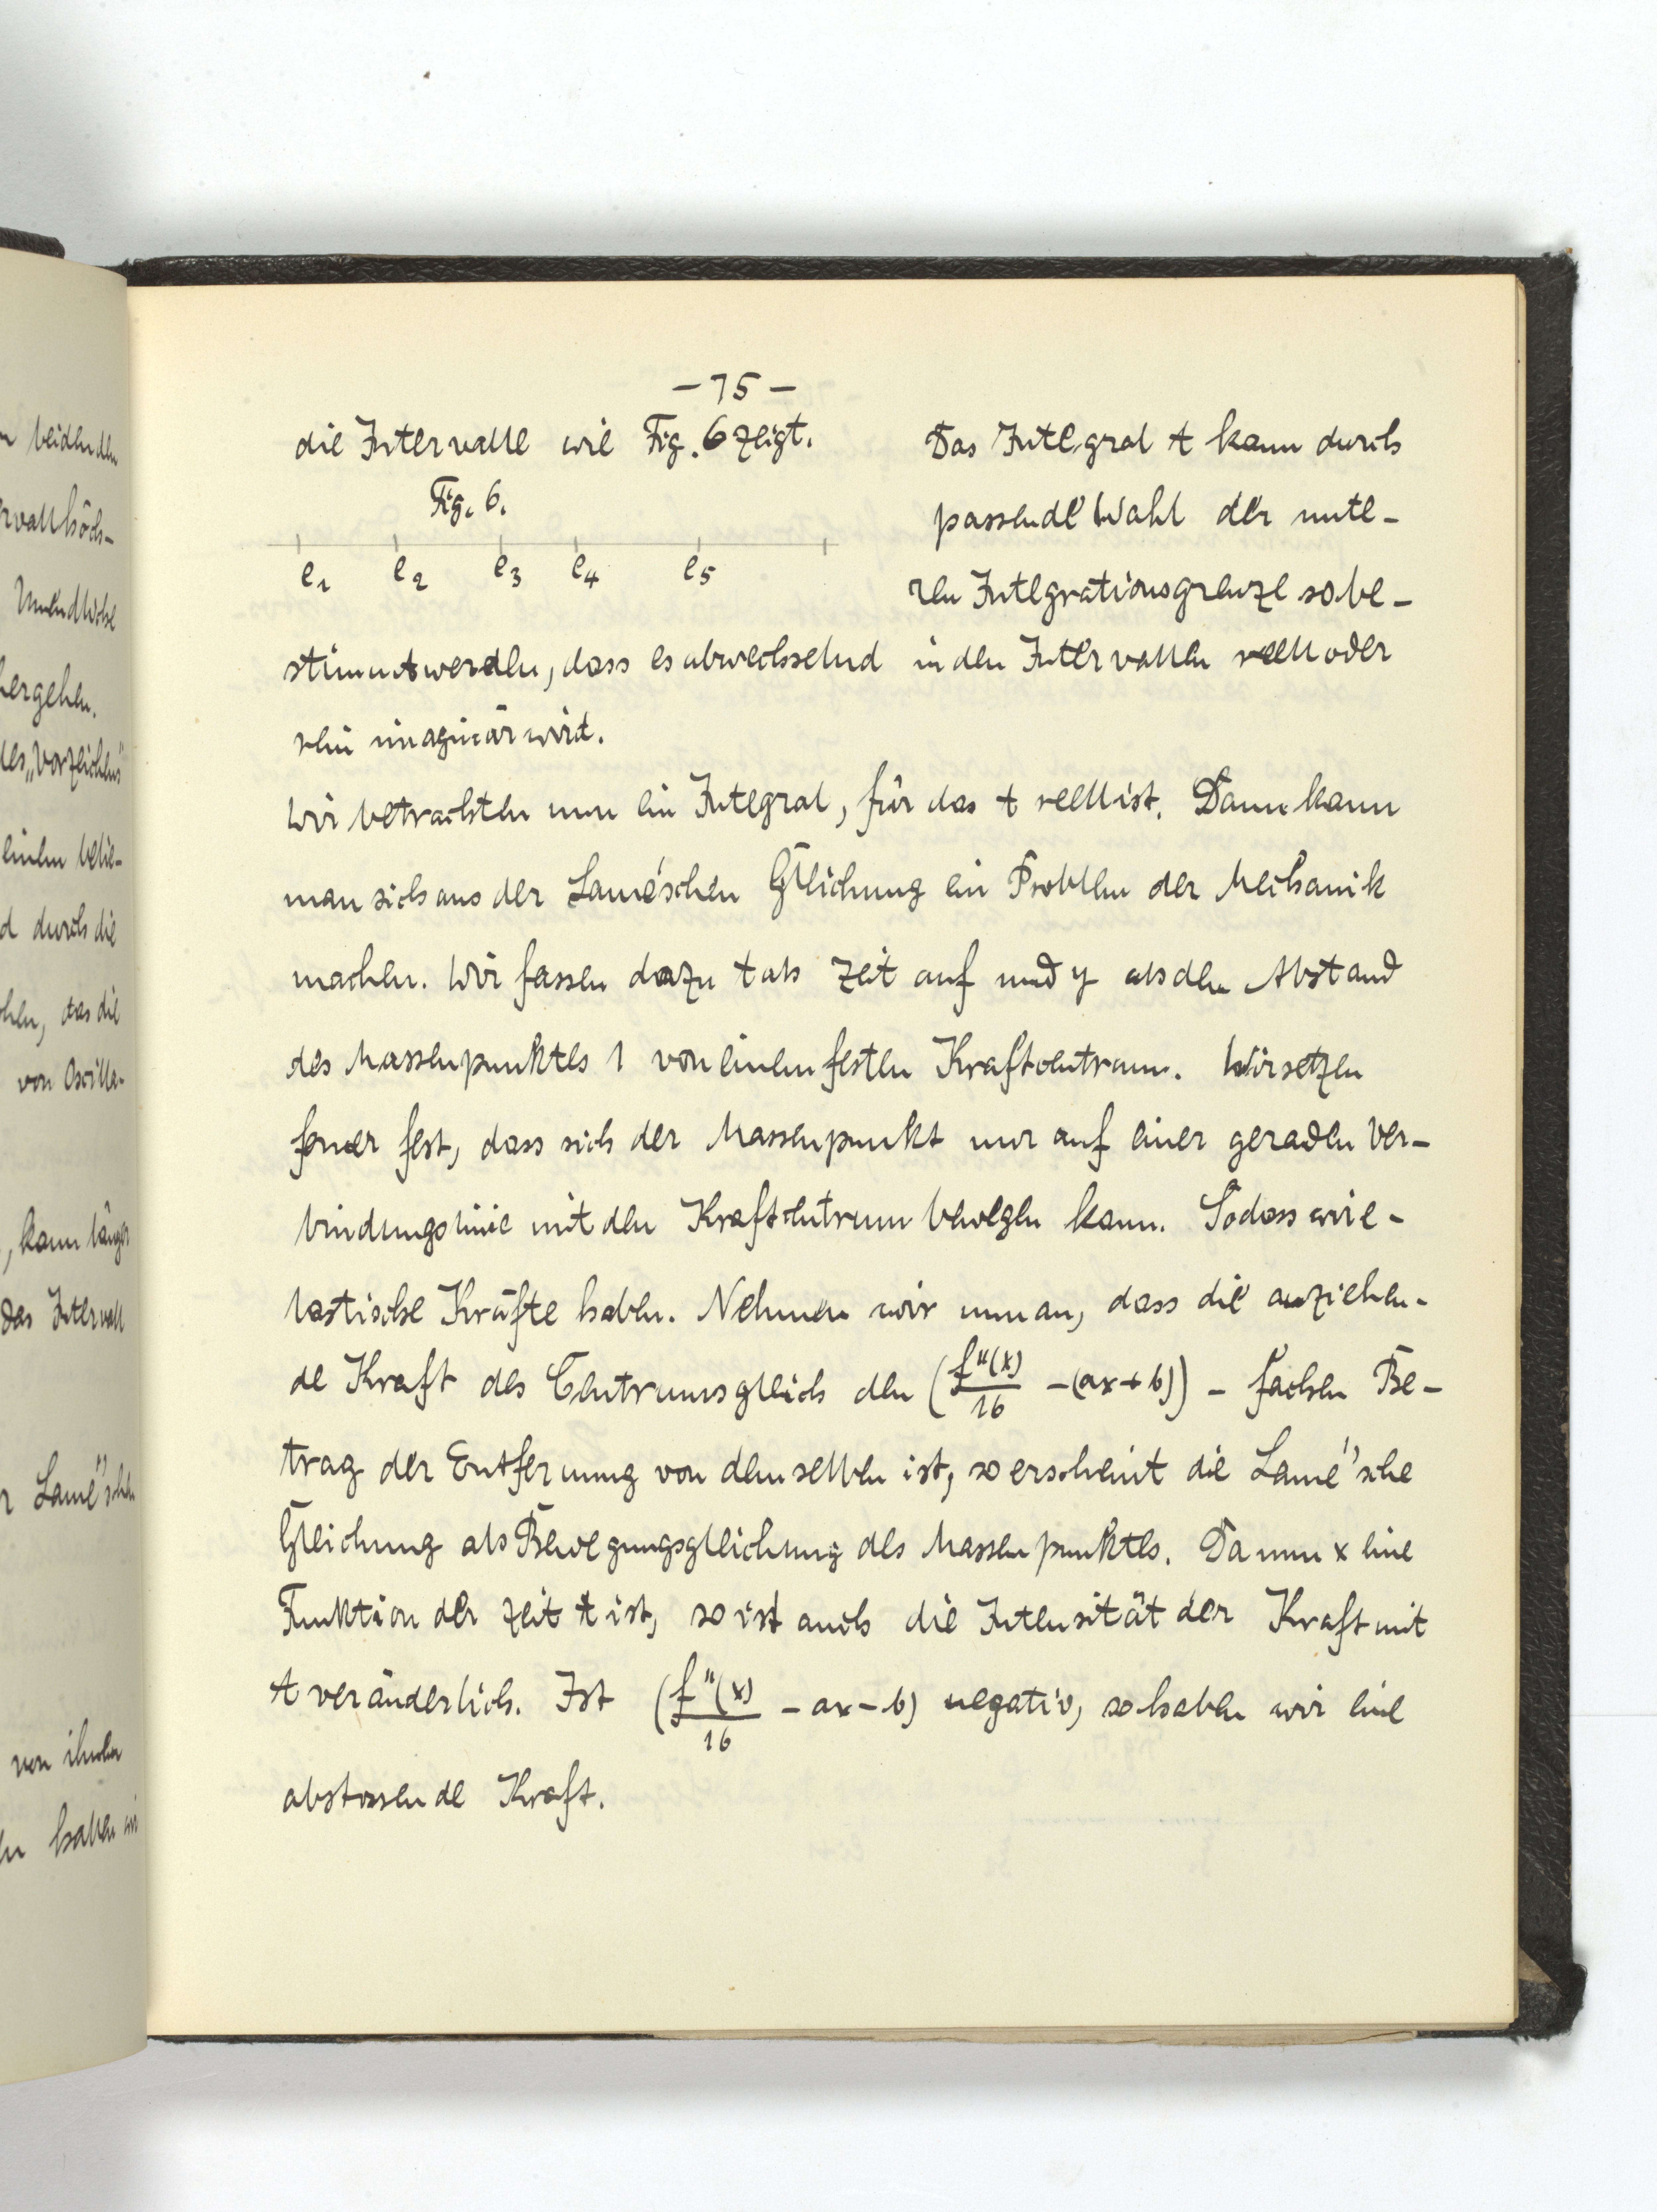 n beidenden
ervall höch-
Unendliche
hergehen.
des „Vorzeichens"
einem belie-
d durch die
ohen, das die
von Oscilla-
, kann länger
das Intervall
r Lamé'schen
von ihnen
en haben wir
- 75 -
die Intervalle wie Fig. 6 zeigt.
Fig. 6.
e₁ e₂ e₃ e₄ e₅
Das Integral t kann durch
passende Wahl der unte-
ren Integrationsgrenze so be-
stimmt werden, dass es abwechselnd in den Intervallen reell oder
rein imaginär wird.
Wir betrachten nun ein Integral, für das t reell ist. Dann kann
man sich aus der Lamé'schen Gleichung ein Problem der Mechanik
machen. Wir fassen dazu t als Zeit auf und y als den Abstand
des Massenpunktes 1 von einem festen Kraftcentrum. Wir setzen
ferner fest, dass sich der Massenpunkt nur auf einer geraden Ver-
bindungslinie mit den Kraftcentrum bewegen kann. Sodass wir e-
lastische Kräfte haben. Nehmen wir nun an, dass die anziehen-
de Kraft des Centrums gleich den (f''(x)/16 - (ax + b)) - fachen Be-
trag der Entfernung von demselben ist, so erscheint die Lamé'sche
Gleichung als Bewegungsgleichung des Massenpunktes. Da nun x eine
Funktion der Zeit t ist, so ist auch die Intensität der Kraft mit
t veränderlich. Ist (f''(x)/16 - ax - b) negativ, so haben wir eine
abstossende Kraft.